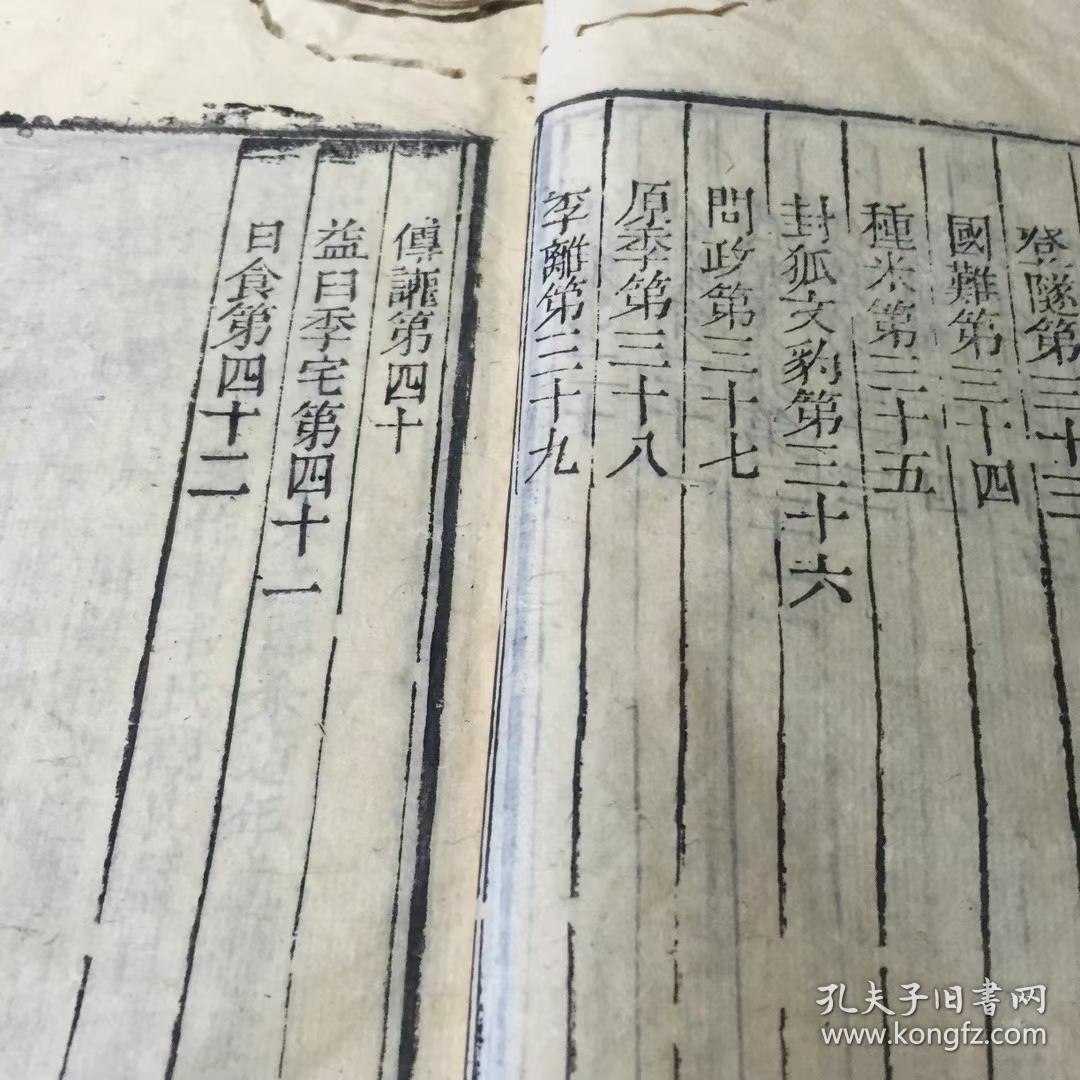 登隧第三十三
國難第三十四
種米第三十五
封狐文豹第三十六
問政第三十七
原季第三十八
李離第三十九
傅讙第四十
益曰季宅第四十一
日食第四十二
孔夫子旧書网
www.kongfz.com